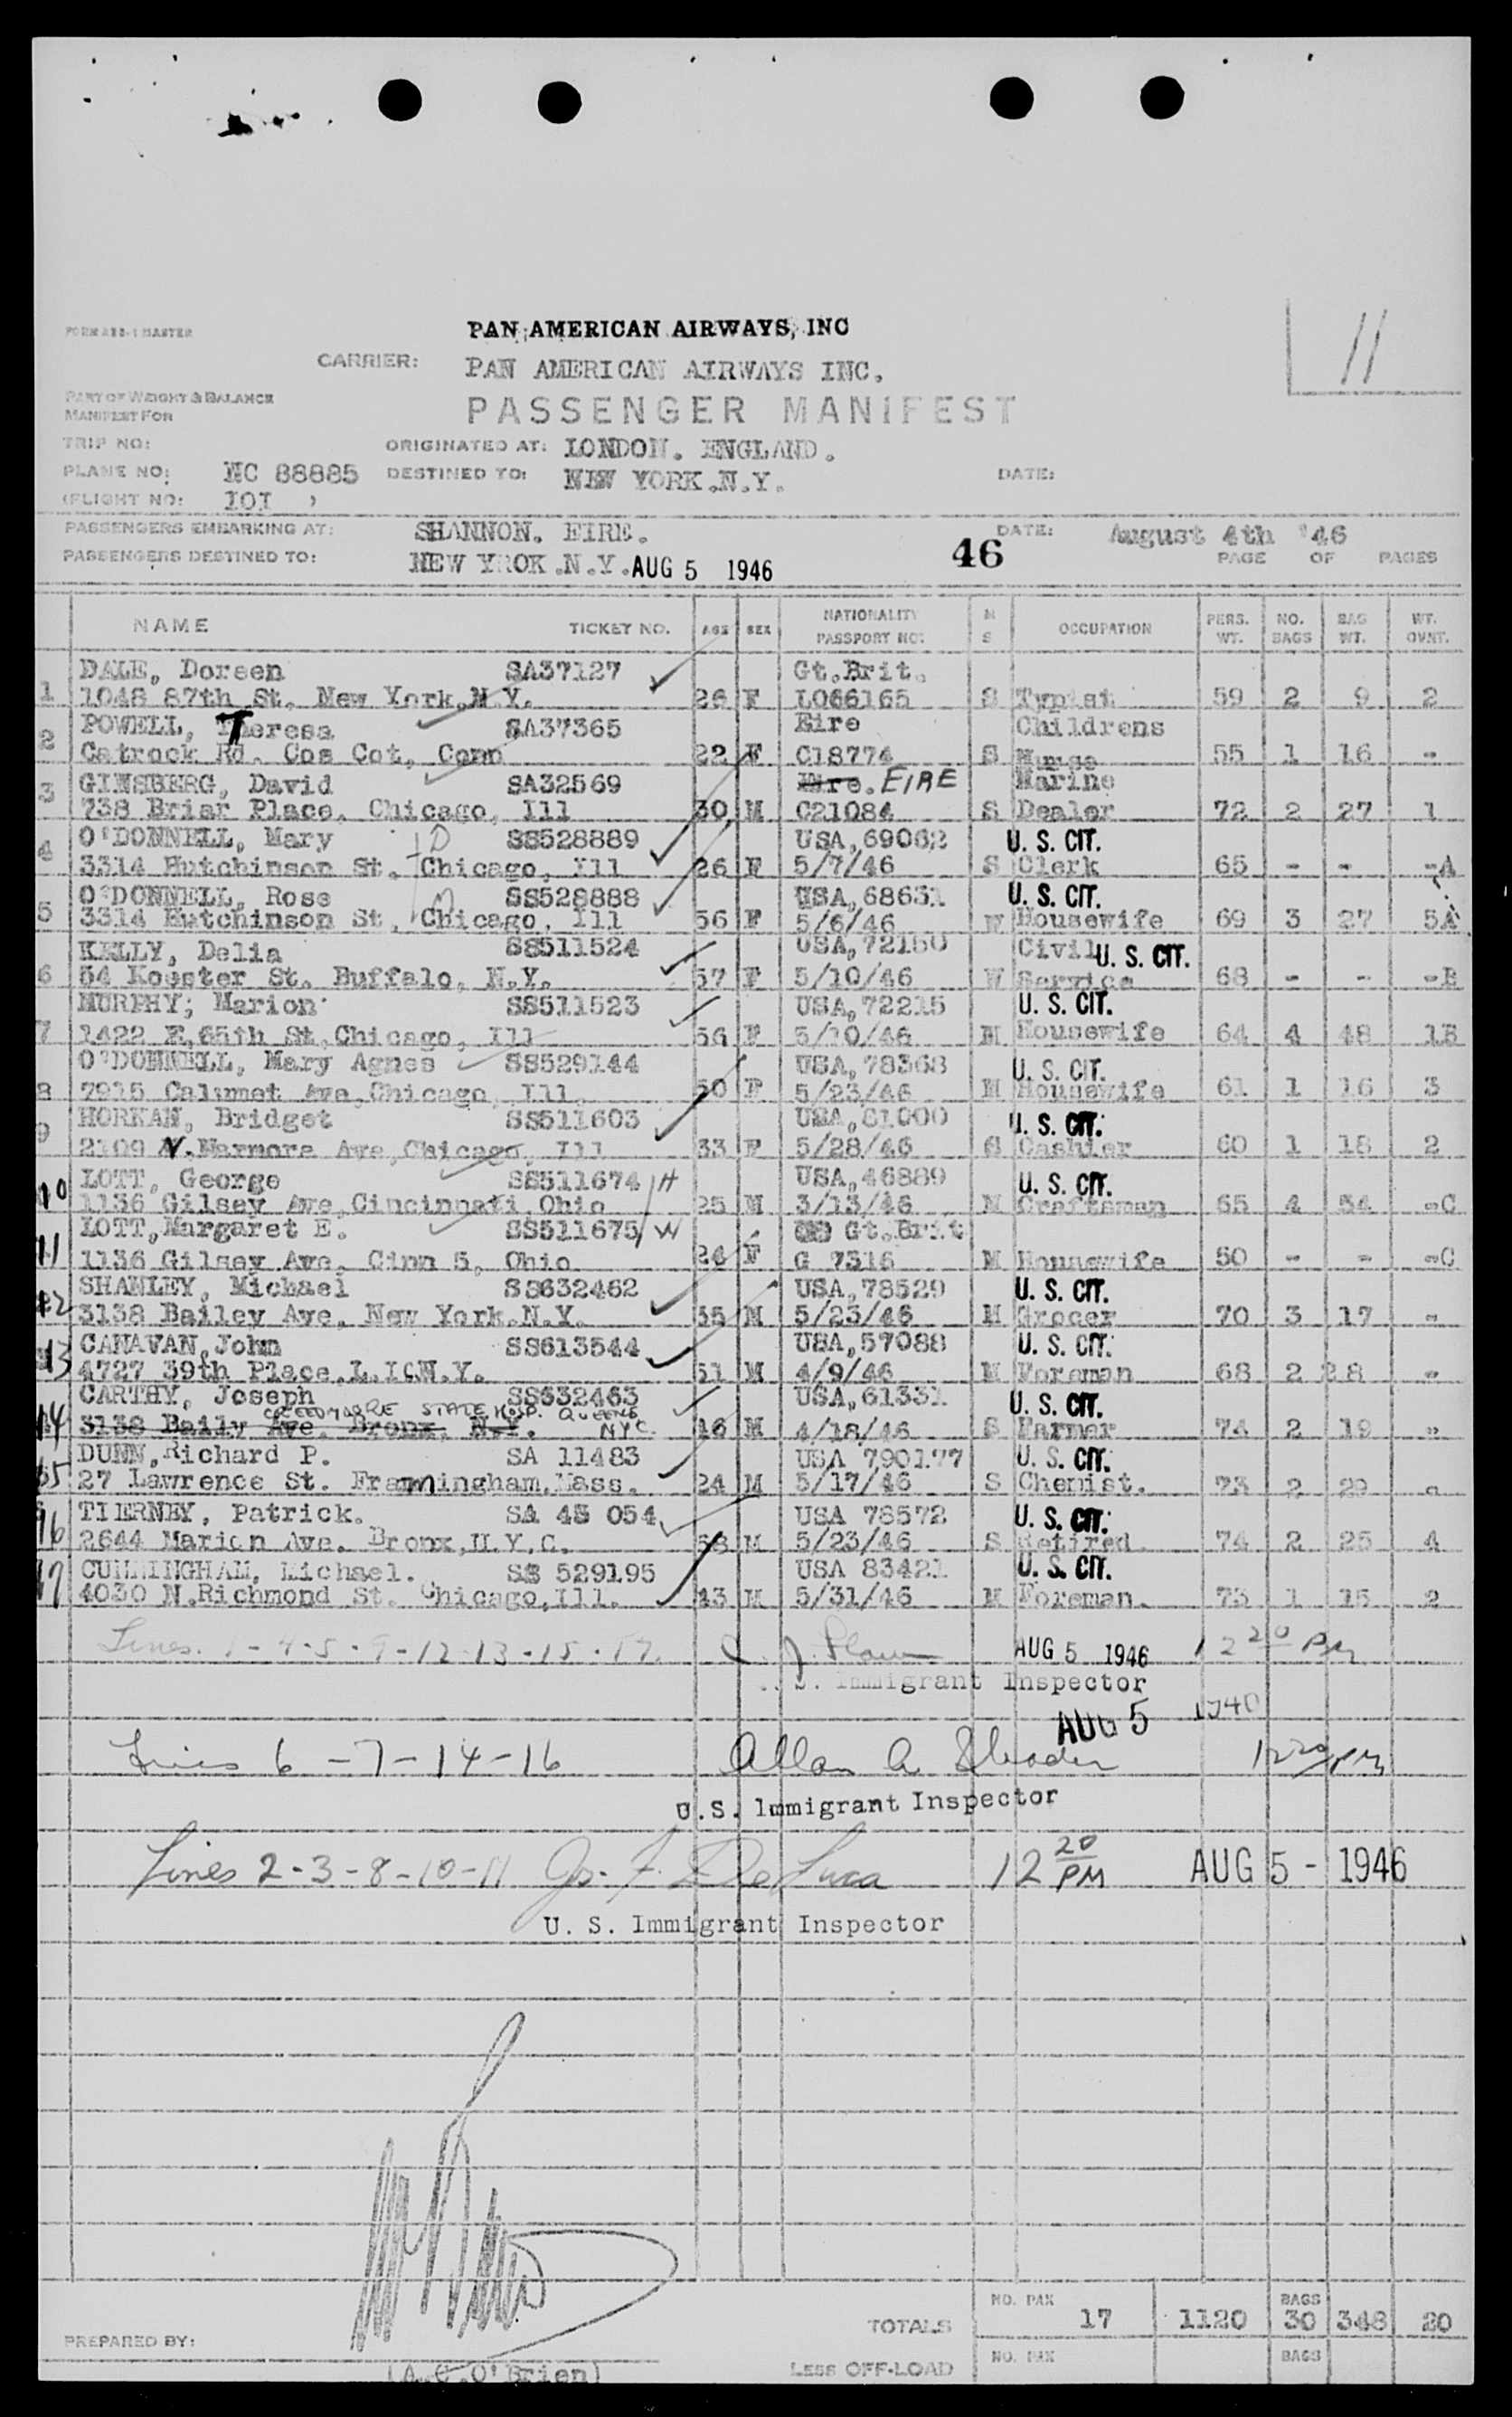 11
FORM 
PAN AMERICAN AIRWAYS, INC
CARRIER: PAN AMERICAN AIRWAYS INC.
PART OF WEIGHT & BALANCE
MANIFEST FOR
PASSENGER MANIFEST
TRIP NO: ORIGINATED AT: LONDON. ENGLAND.
PLANE NO: NC 88885 DESTINED TO: NEW YORK.N.Y. DATE:
(FLIGHT NO: IOI )
PASSENGERS EMBARKING AT: SHANNON. EIRE. DATE: August 4th '46
PASSENGERS DESTINED TO: NEW YROK.N.Y. AUG 5 1946 46 PAGE OF PAGES
NAME TICKET NO. AGE SEX NATIONALITY PASSPORT NO: M S OCCUPATION PERS. WT. NO. BAGS BAG WT. WT. OVNT.
DALE, Doreen SA37127 Gt.Brit.
1 1048 87th St. New York.N.Y. 26 F LO66165 S Typist 59 2 9 2
POWELL, Theresa SA37365 Eire Childrens
2 Catrock Rd. Cos Cot, Conn 22 F C18774 S Nurse 55 1 16 -
GINSBERG, David SA32569 EIRE Marine
3 738 Briar Place, Chicago, Ill 30 M C21084 S Dealer 72 2 27 1
O'DONNELL, Mary D SS528889 USA,69062 U. S. CIT.
4 3314 Hutchinson St. Chicago, Ill 26 F 5/7/46 S Clerk 65 - - -A
O'DONNELL, Rose SS528888 USA,68631 U. S. CIT.
5 3314 Hutchinson St, Chicago, Ill 56 F 5/6/46 W Housewife 69 3 27 5A
KELLY, Delia SS511524 USA,72160 Civil U. S. CIT.
6 54 Koester St. Buffalo, N.Y. 57 F 5/10/46 W Service 68 - - -B
MURPHY; Marion SS511523 USA,72215 U. S. CIT.
7 1422 E.65th St.Chicago, Ill 56 F 5/10/46 M Housewife 64 4 48 1B
O'DONNELL, Mary Agnes SS529144 USA,78368 U. S. CIT.
8 7915 Calumet Ave,Chicago, Ill. 50 F 5/23/46 M Housewife 61 1 16 3
HORKAN, Bridget SS511603 USA,81000 U. S. CIT.
9 2109 N.Narmora Ave,Chicago, Ill 33 F 5/28/46 S Cashier 60 1 18 2
LOTT, George SS511674 H USA,46889 U. S. CIT.
10 1136 Gilsey Ave,Cincinnati,Ohio 25 M 3/13/46 M Craftsman 65 4 54 -C
LOTT,Margaret E. SS511675 W Gt.Brit
11 1136 Gilsey Ave. Cinn 5, Ohio 24 F G 7316 M Housewife 50 - - -C
SHANLEY, Michael SS632462 USA,78529 U. S. CIT.
12 3138 Bailey Ave, New York.N.Y. 35 M 5/23/46 M Grocer 70 3 17 -
CANAVAN,John SS613544 USA,57088 U. S. CIT.
13 4727 39th Place.L.ICN.Y. 51 M 4/9/46 M Foreman 68 2 28 -
CARTHY, Joseph SS632463 USA,61331 U. S. CIT.
CREEDMOORE STATE HOSP. QUEENS NYC
14 3138 Baily Ave. Bronx, N.Y. 46 M 4/18/46 S Farmer 74 2 19 -
DUNN,Richard P. SA 11483 USA 790177 U. S. CIT.
15 27 Lawrence St. Framingham.Mass. 24 M 5/17/46 S Chemist. 73 2 29 -
TIERNEY, Patrick. SA 4S 054 USA 78572 U. S. CIT.
16 2644 Marion Ave. Bronx,N.Y.C. 68 M 5/23/46 S Retired. 74 2 25 4
CUNNINGHAM, Michael. SS 529195 USA 83421 U. S. CIT.
17 4030 N.Richmond St. Chicago,Ill. 43 M 5/31/46 M Foreman. 73 1 15 2
Lines. 1-4-5-9-12-13-15-17. AUG 5 1946 12 20 PM
Immigrant Inspector
AUG 5
Lines 6-7-14-16 Allan A. 12 20 PM
U.S. Immigrant Inspector
Lines 2-3-8-10-11 Jos. F. De Luca 12 20 PM AUG 5 - 1946
U. S. Immigrant Inspector
TOTALS NO. PAX 17 1120 BAGS 30 348 20
PREPARED BY: (A.C.O'Brien) LESS OFF-LOAD NO. PAX BAGS